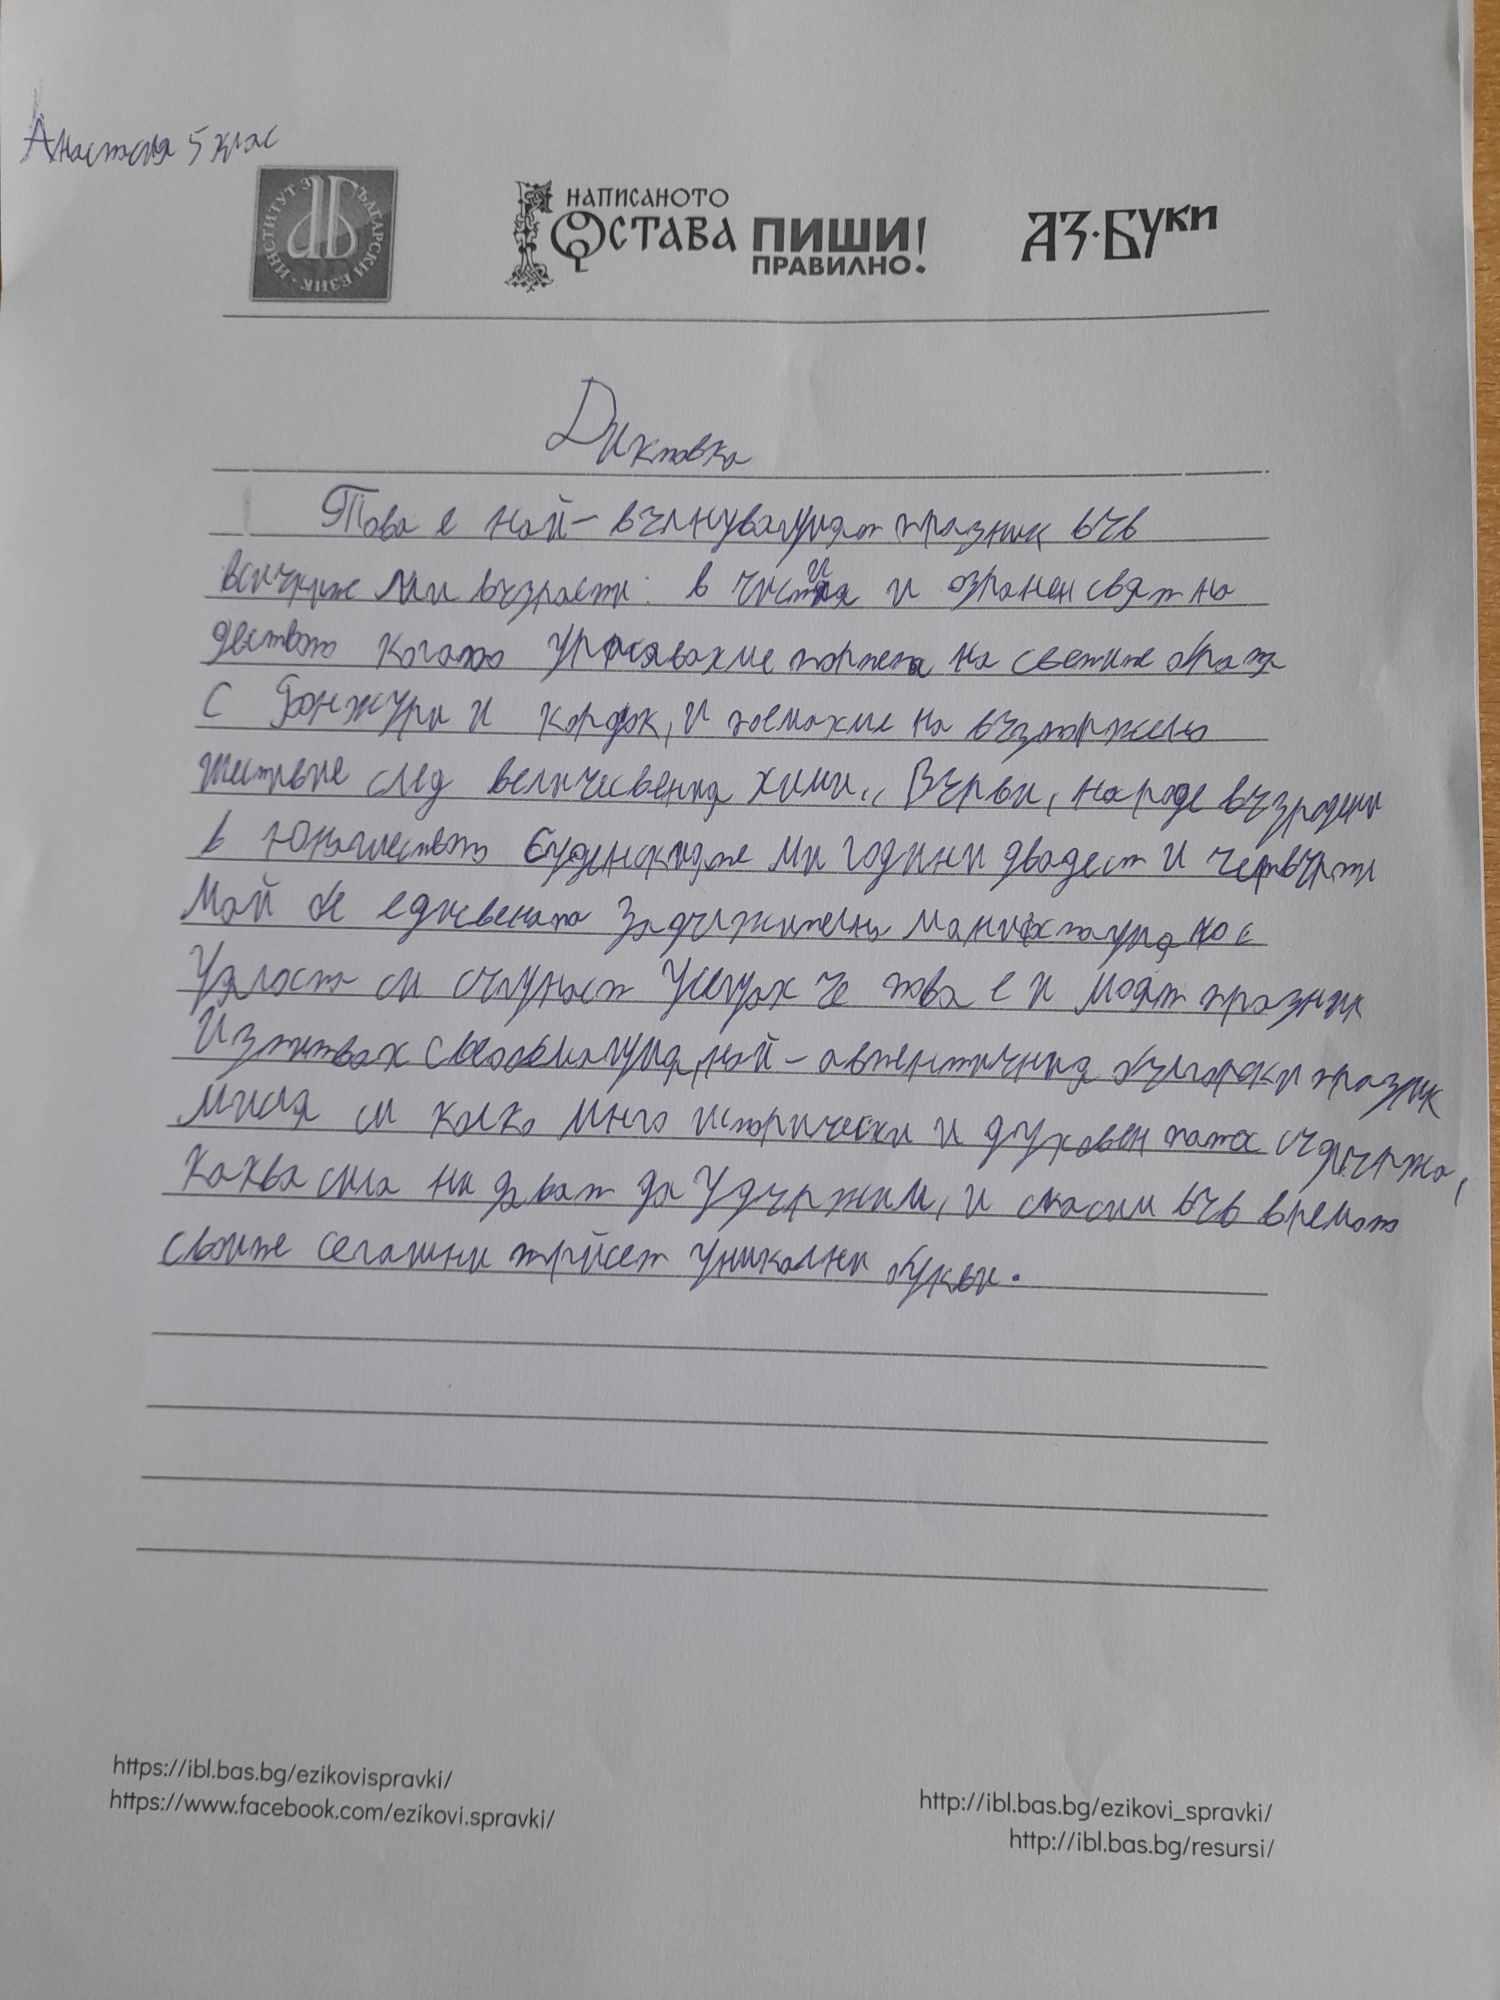 Анастасия 5 клас
ИНСТИТУТ ЗА БЪЛГАРСКИ ЕЗИК
НАПИСАНОТО
ОСТАВА ПИШИ
ПРАВИЛНО!
АЗ·БУКИ
Диктовка
Това е най-вълнуващият празник във
всичките ми възрасти: в чистия и огромен свят на
детството когато украсявахме портрета на светите братя
с божури и здравец, и поемахме на възторжено
шествие след величесвения химн „Върви, народе възродени
в юношеството студенските ми години двадест и четвърти
май бе едисвената задължителна манифестация, но с
цялост си същност усещах че това е и моят празник
Изживвах свеобемащия, най-автентичния български празник
Мисля си колко много исторически и духовен патос съдържа,
каква сила ни дават да удържим, и спасим във времето
своите сегашни трйсет уникални букви.
https://ibl.bas.bg/ezikovispravki/
https://www.facebook.com/ezikovi.spravki/
http://ibl.bas.bg/ezikovi_spravki/
http://ibl.bas.bg/resursi/